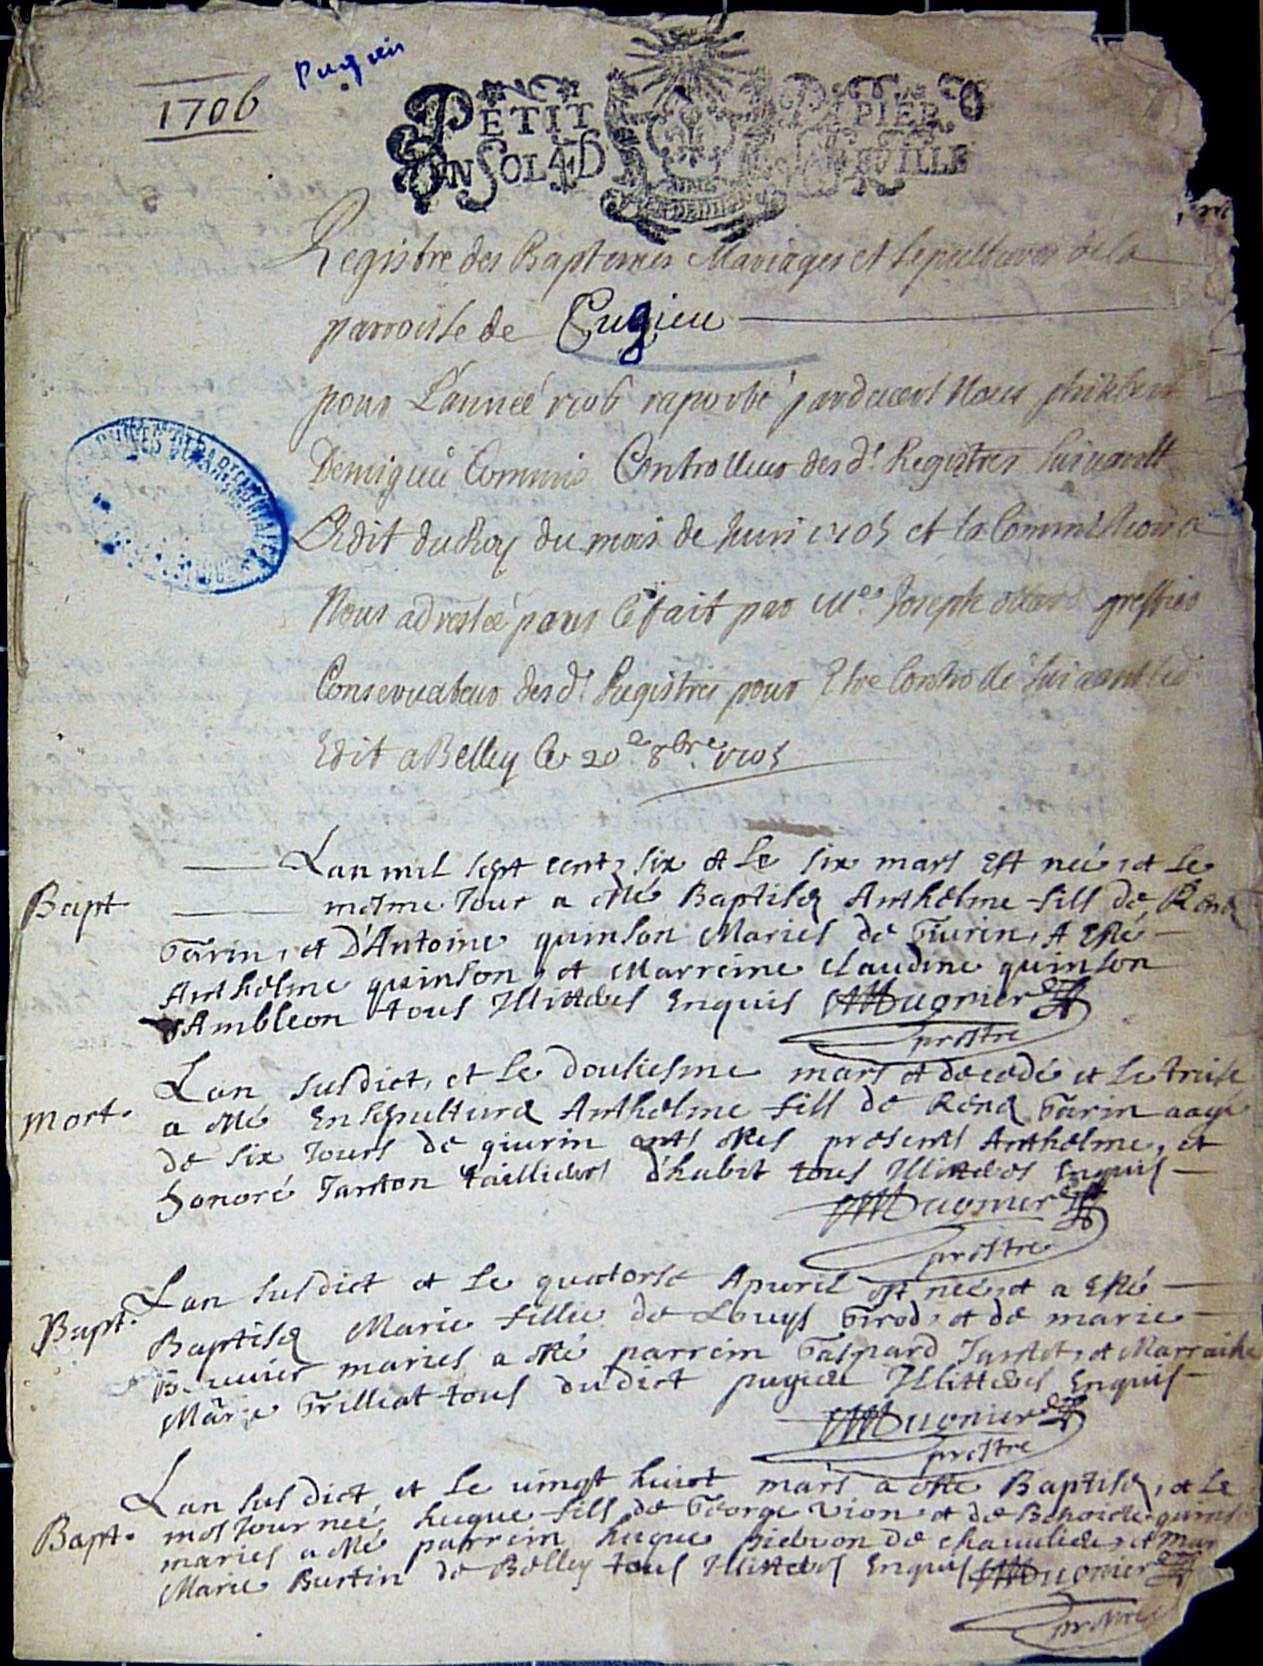 1706
Pugieu
PETIT PAPIER
UN SOL 4 D LA FEUILLE
Registre des Baptemes Mariages et Sepultures dela
parroisse de Pugieu
pour L'année 1706 raporté pardevers Nous philibert
Commis Controlleur des d.t Registres suivantt
Edit du Roy du mois de Juin 1705 et la Commission a
Nous adressée pour Cefait par Me Joseph greffier
Conservateur des d.t Registres pour Etre Controllé suivant led
Edit a Belley le 20e 8bre 1705
Bapt
Lan mil sept cent six et le six mars est neé, et le
mesme Jour a esté Baptisé Anthelme fils de René
Garin, et D'Antoine quinson Mariés de Giurin, A Esté
Anthelme quinson, et Marreine claudine quinson
d'Ambleon tous Illittérés Enquis
prestre
Mort
Lan susdict, et le dousiesme mars et decedé et le treise
a esté Ensepulturé Anthelme fils de René Garin aagé
de six Jours de giurin ants estes presents Anthelme, et
honoré Janton taillieurs d'habit tous Illittérés Enquis
prestre
Bapt.
Lan susdict et le quatorse Apvril est neé, et a Esté
Baptisé Marie fillie de Louys Girod, et de marie
mariés a esté parrein Gaspard et Marraine
Marie Trilliat tous dudict pugieu Illittérés Enquis
prestre
Bapt.
Lan susdict, et le vingt huict mars a esté Baptisé, et le
mes Jour neé, hugue fils de George Vion et de Benoicte quins
mariés a esté parrein hugue de et mar
Marie Burtin de Belley tous Illittérés Enquis
prestre